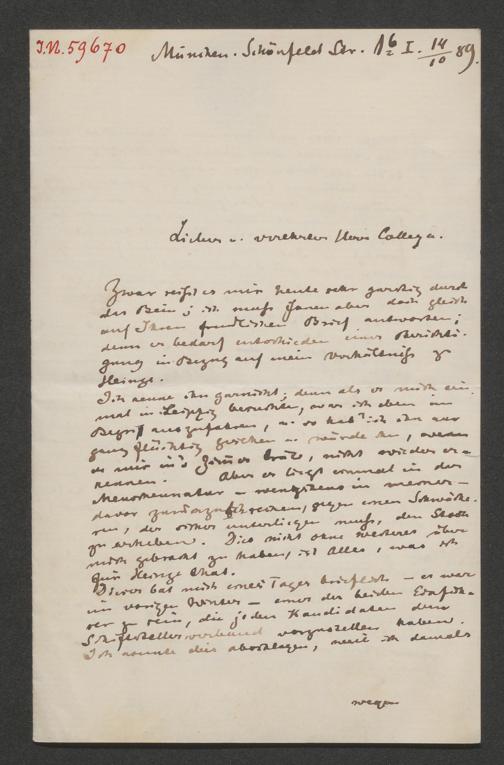 I.N. 59670
München. Schönfeld Str. 16 I. 14/10 89.
Lieber u. verehrter Herr College.
Zwar reißt es mir heute sehr garstig durch
das Bein; ich muß Ihnen aber doch gleich
auf Ihren freundlichen Brief antworten;
denn er bedarf entschieden einer Berichti-
gung in Bezug auf mein Verhältniß zu
Heinze.
Ich kenne ihn garnicht; denn als er mich ein-
mal in Leipzig besuchte, war ich eben im
Begriff auszufahren, u. so hab' ich ihn nur
ganz flüchtig gesehen u. würde ihn, wenn
er mir in's Zimmer träte, nicht wieder er-
kennen. Aber es liegt einmal in der
Menschennatur – wenigstens in meiner –
davor zurückzuschrecken, gegen einen Schwäche-
ren, der sicher unterliegen muß, den Stock
zu erheben. Dies nicht ohne Weiteres über
mich gebracht zu haben, ist Alles, was ich
für Heinze that.
Dieser bat mich eines Tages brieflich – es war
im vorigen Winter – einer der beiden
zu sein, die jeden Kandidaten dem
Schriftstellerverband vorzustellen haben.
Ich konnte dies abschlagen, weil ich damals
wegen